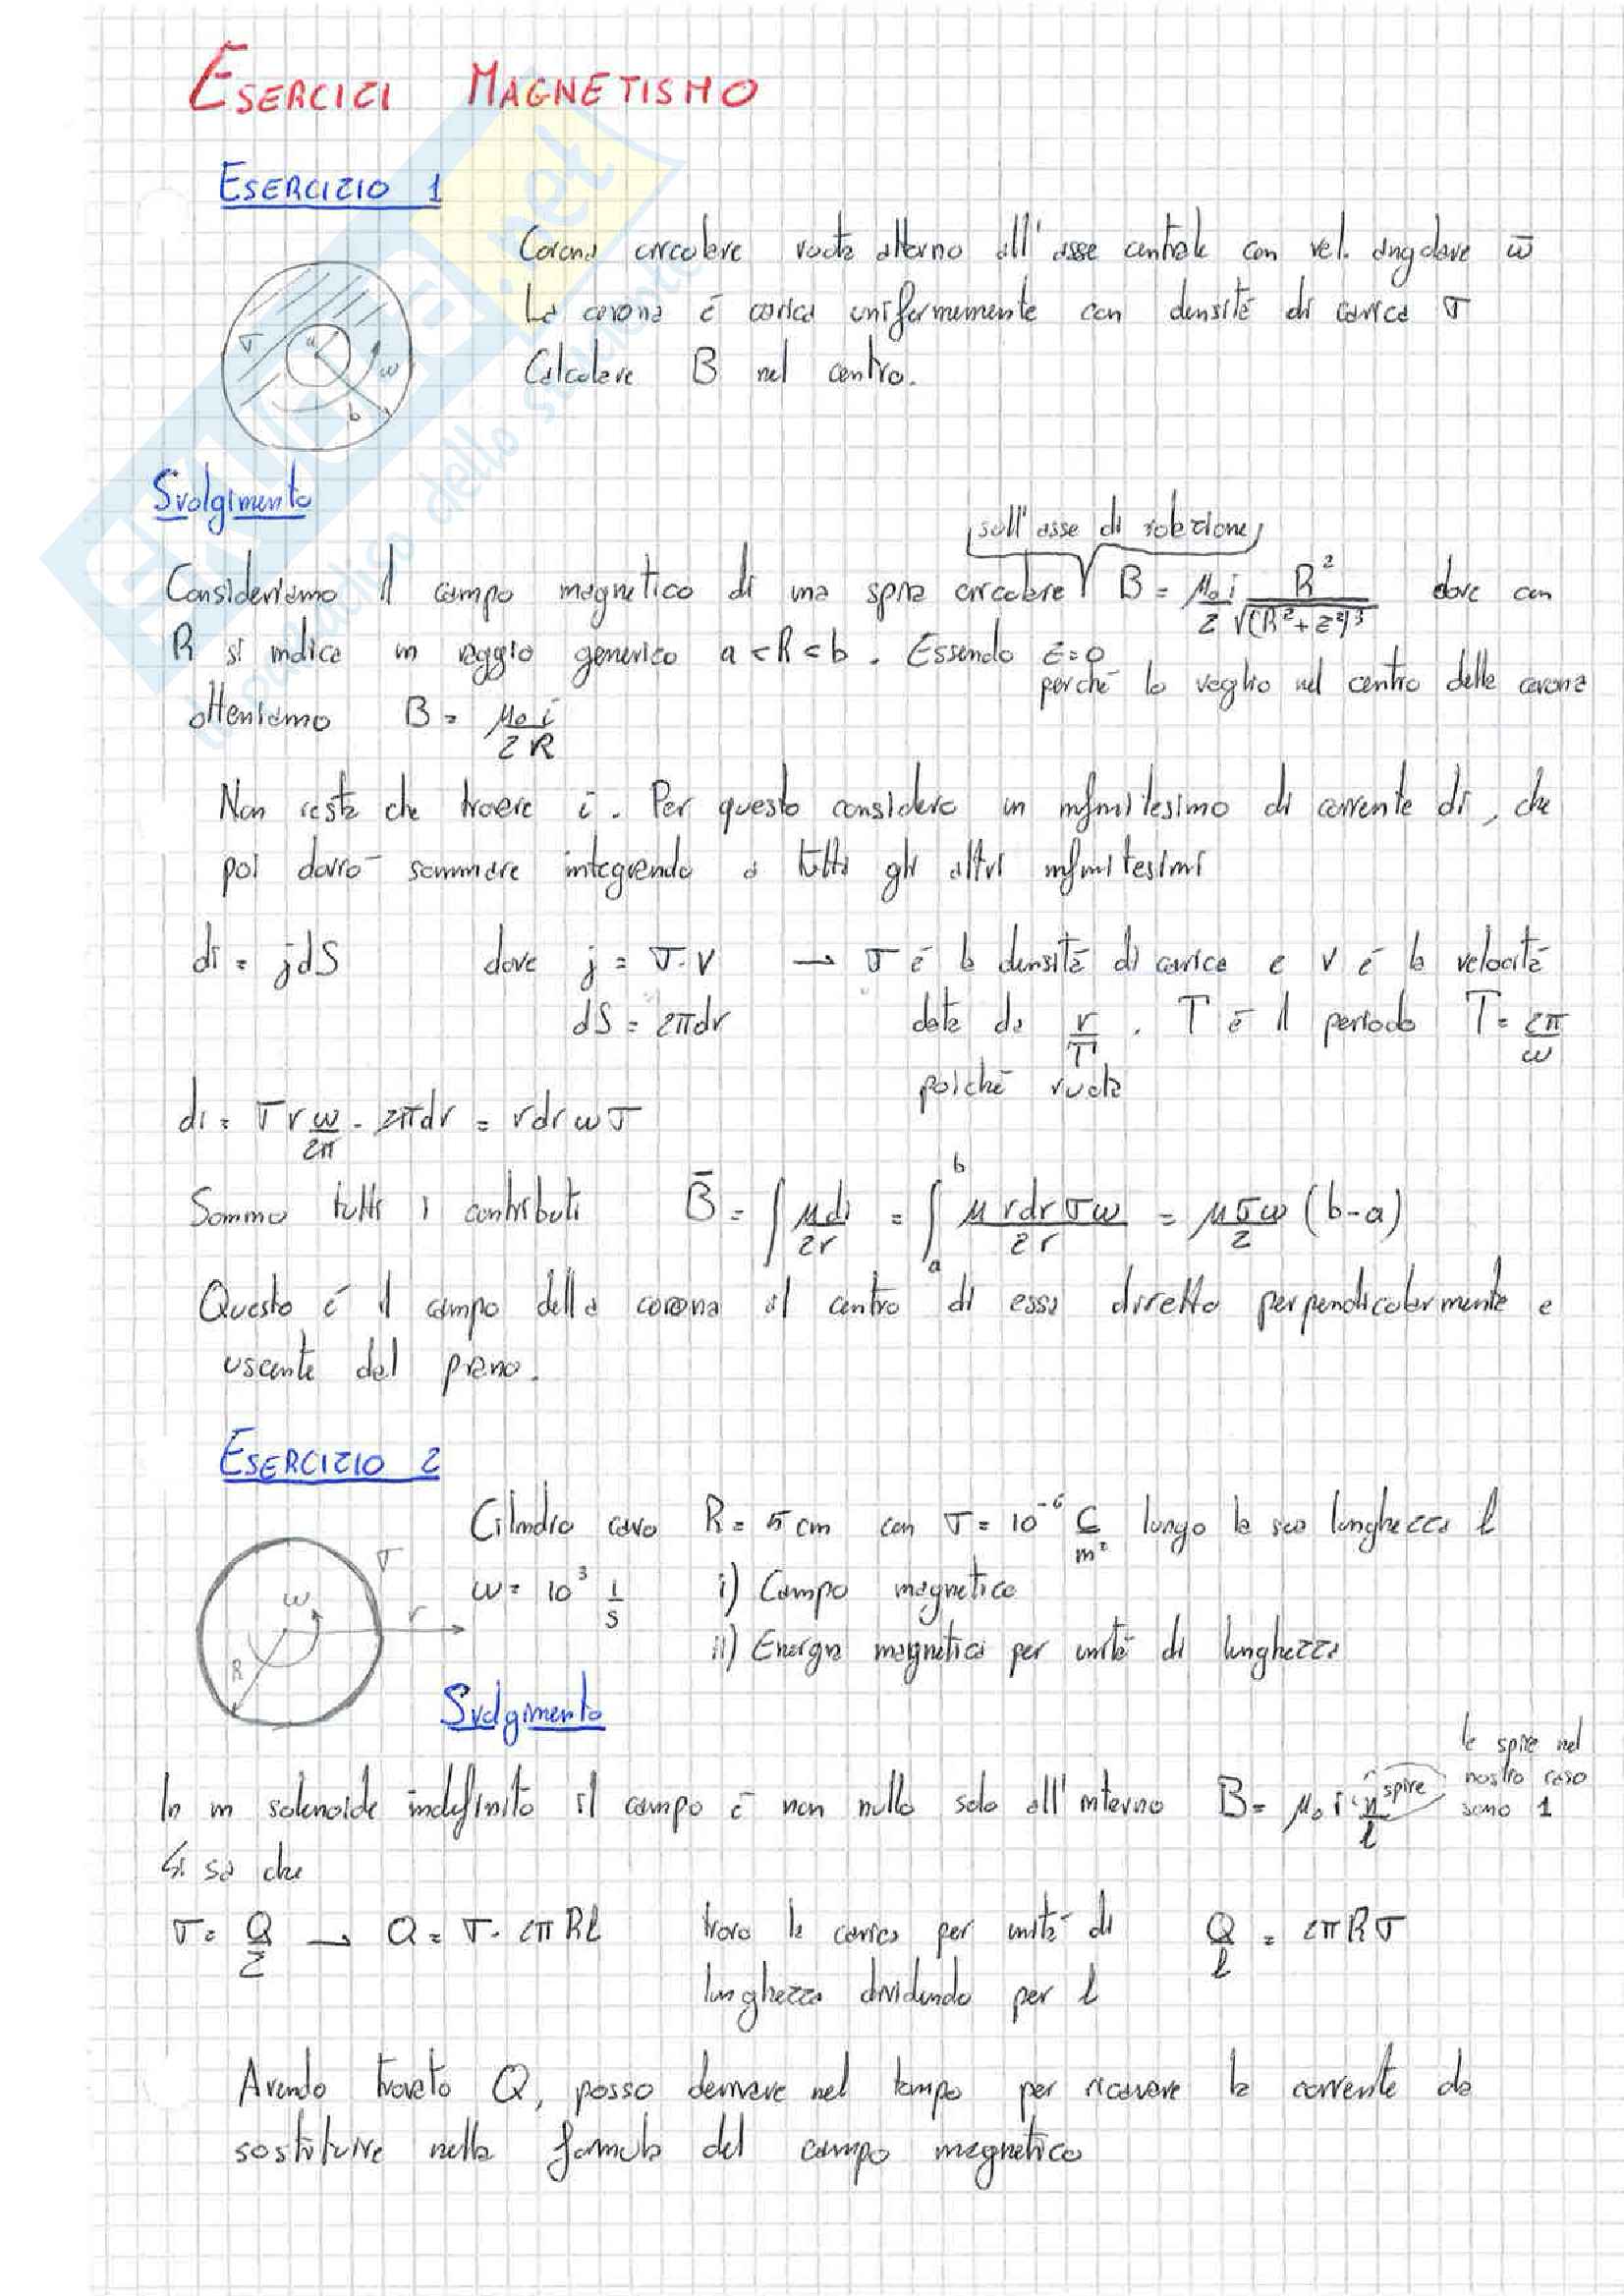 ESERCIZI MAGNETISMO
ESERCIZIO 1
Corona circolare ruota attorno all'asse centrale con vel. angolare ω̄
La corona è carica uniformemente con densità di carica σ
Calcolare B nel centro.
σ a ω b
Svolgimento
sull'asse di rotazione
Consideriamo il campo magnetico di una spira circolare B = μ₀i/2 R²/√(R²+z²)³ dove con
R si indica un raggio generico a<R<b. Essendo z=0
perché lo voglio nel centro della corona
otteniamo B = μ₀i/2R
Non resta che trovare i. Per questo considero un infinitesimo di corrente di, che
poi dovrò sommare integrando a tutti gli altri infinitesimi
di = jdS dove j = σ·v → σ è la densità di carica e v è la velocità
dS = 2πdr data da r/T. T è il periodo T = 2π/ω
poiché ruota
di = σ r ω/2π · 2πdr = rdrωσ
Sommo tutti i contributi B̄ = ∫ μdi/2r = ∫ₐᵇ μrdrσω/2r = μσω/2 (b-a)
Questo è il campo della corona al centro di essa diretto perpendicolarmente e
uscente dal piano.
ESERCIZIO 2
Cilindro cavo R = 5 cm con σ = 10⁻⁶ C/m² lungo la sua lunghezza l
ω = 10³ 1/s i) Campo magnetico
ii) Energia magnetica per unità di lunghezza
σ ω r R
Svolgimento
In un solenoide indefinito il campo è non nullo solo all'interno B = μ₀i·n/l spire
le spire nel
nostro caso
sono 1
Si sa che
σ = Q/Σ → Q = σ·2πRl trovo la carica per unità di Q/l = 2πRσ
lunghezza dividendo per l
Avendo trovato Q, posso derivare nel tempo per ricavare la corrente da
sostituire nella formula del campo magnetico
skuola.net